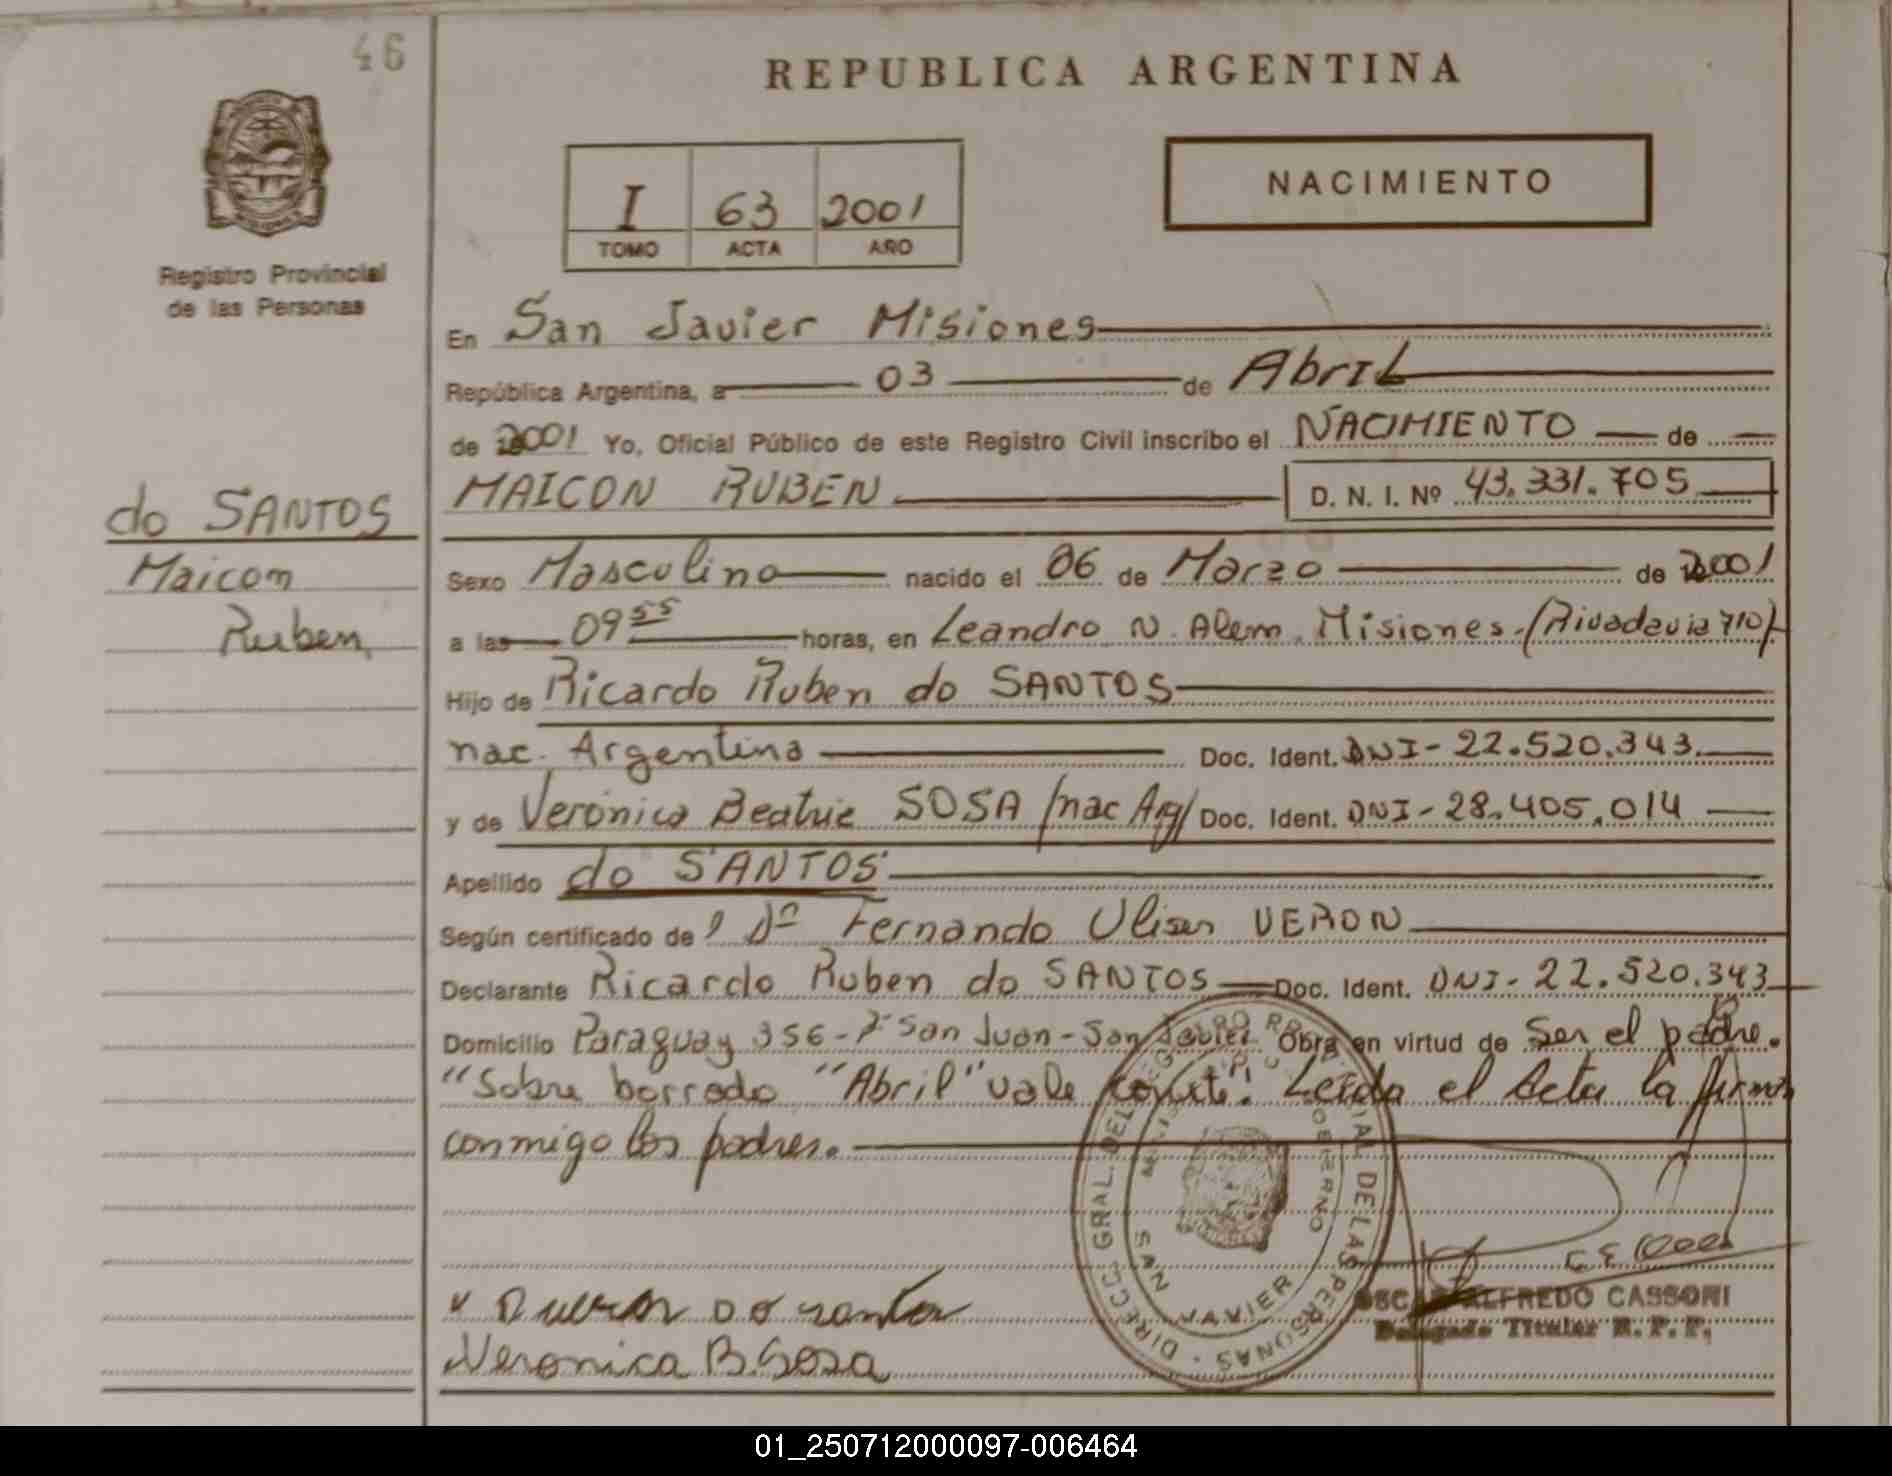 46
REPUBLICA ARGENTINA
I 63 2001
TOMO ACTA AÑO
NACIMIENTO
Registro Provincial
de las Personas
En San Javier Misiones
República Argentina, a 03 de Abril
de 2001 Yo, Oficial Público de este Registro Civil inscribo el NACIMIENTO de
MAICON RUBEN D. N. I. Nº 43.331.705
do SANTOS
Maicon
Ruben
Sexo Masculino nacido el 06 de Marzo de 2001
a las 09 55 horas, en Leandro N. Alem. Misiones. (Rivadavia 710)
Hijo de Ricardo Ruben do SANTOS
nac. Argentina Doc. Ident. DNI - 22.520.343.
y de Verónica Beatriz SOSA /nac Arg/ Doc. Ident. DNI - 28.405.014
Apellido do SANTOS
Según certificado de Fernando Ulises VERON
Declarante Ricardo Ruben do SANTOS Doc. Ident. DNI - 22.520.343
Domicilio Paraguay 356 - San Juan - San Javier Obra en virtud de Ser el padre.
"Sobre borrado "Abril" vale Leída el Acta la firman
conmigo los padres.
DIRECC. GRAL. DEL REGISTRO PROVINCIAL DE LAS PERSONAS
GOBIERNO
SAN JAVIER
Ruben do santos
Veronica B. Sosa
OSCAR ALFREDO CASSONI
Delegado Titular R. P. P.
01_250712000097-006464